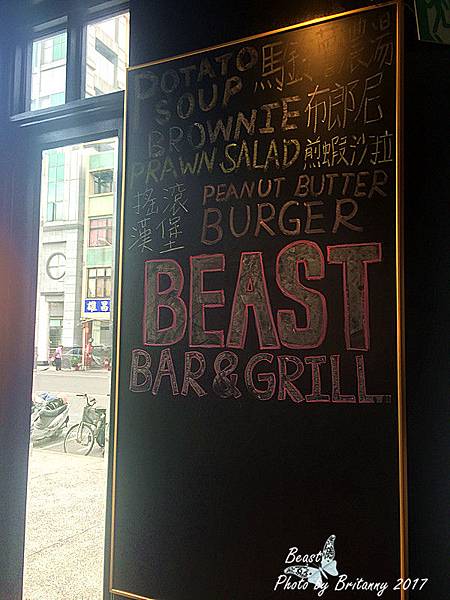 POTATO SOUP 馬鈴薯濃湯
BROWNIE 布郎尼
PRAWN SALAD 煎蝦沙拉
搖滾漢堡 PEANUT BUTTER BURGER
BEAST
BAR & GRILL
雄昌
Beast
Photo by Britanny 2017